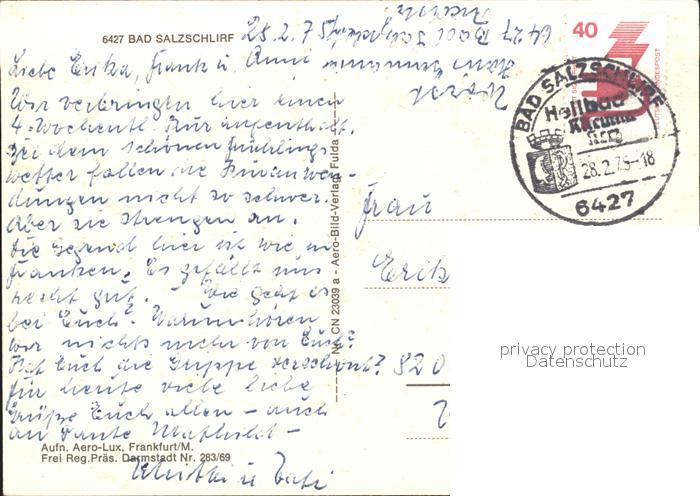 6427 BAD SALZSCHLIRF 25.2.75
Liebe Erika, Frank u. Anni
Wir verbringen hier einen
4-wöchentl. Kuraufenthalt.
Bei dem schönen Frühlings
wetter fallen die Kuranwen-
dungen nicht so schwer.
Aber sie strengen an.
Die Gegend hier ist wie in
Franken. Es gefällt uns
recht gut. Wie geht es
bei Euch? Warum hören
wir nichts mehr von Euch?
Hat Euch die Grippe verschont?
Für heute viele liebe
Grüße Euch allen – auch
an Tante Mathild –
6427 Bad Salzschlirf
Aufn. Aero-Lux, Frankfurt/M.
Frei Reg.Präs. Darmstadt Nr. 283/69
Nr. CN 23039 a - Aero-Bild-Verlag Fulda
40
BUNDESPOST
BAD SALZSCHLIRF
Heilbad
28.2.75-18
6427
Frau
Erik
820
privacy protection
Datenschutz